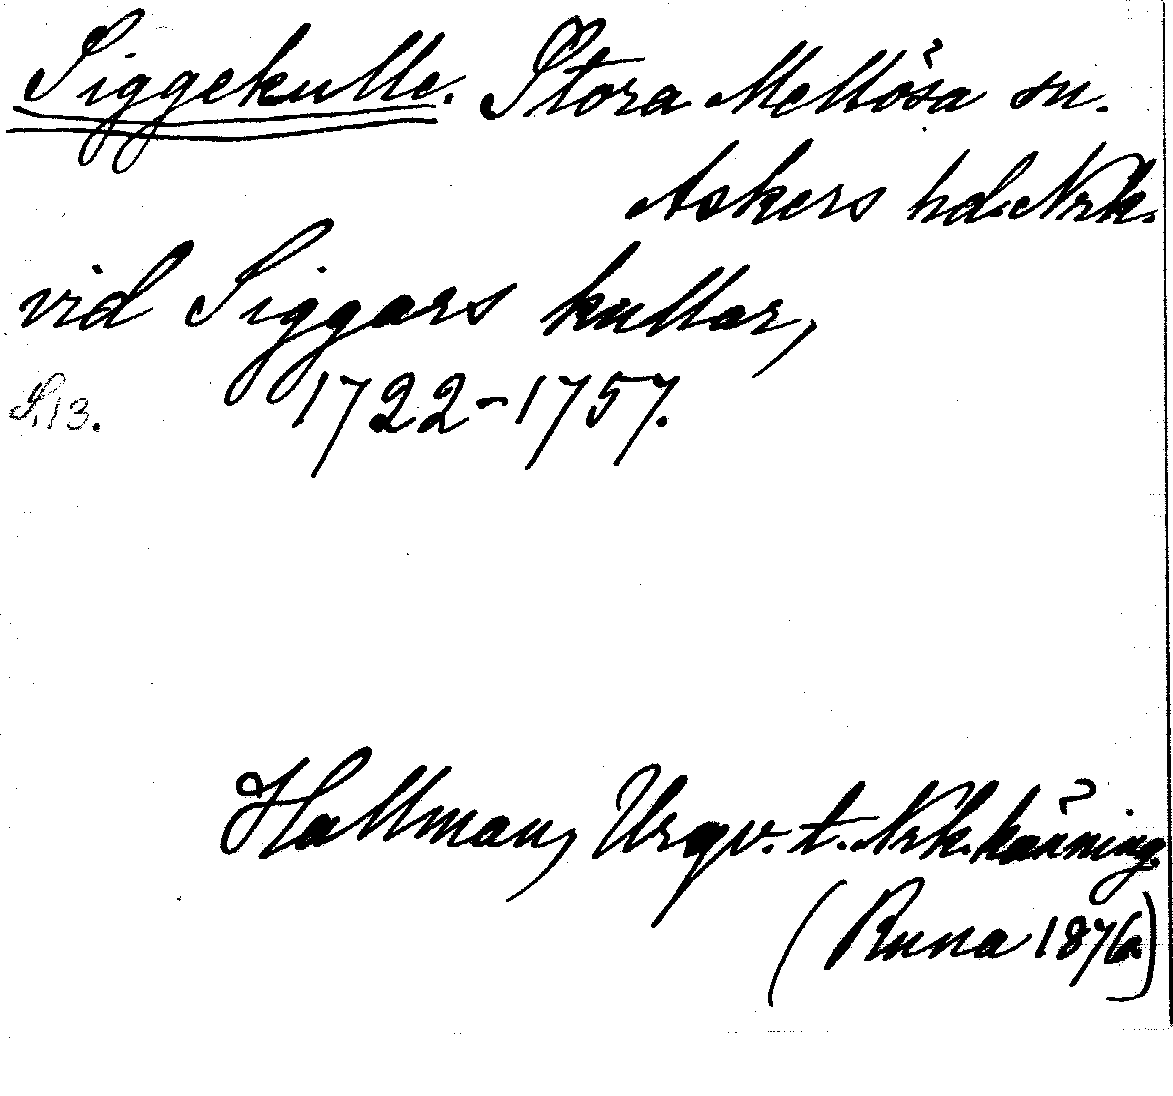 Siggekulle. Stora Mellösa sn.
Askers hd. Nrk.
vid Siggars kullar,
S. 13. 1722-1757.
Hallman, Urgv. t. Nrk. känning.
(Runa 1876)